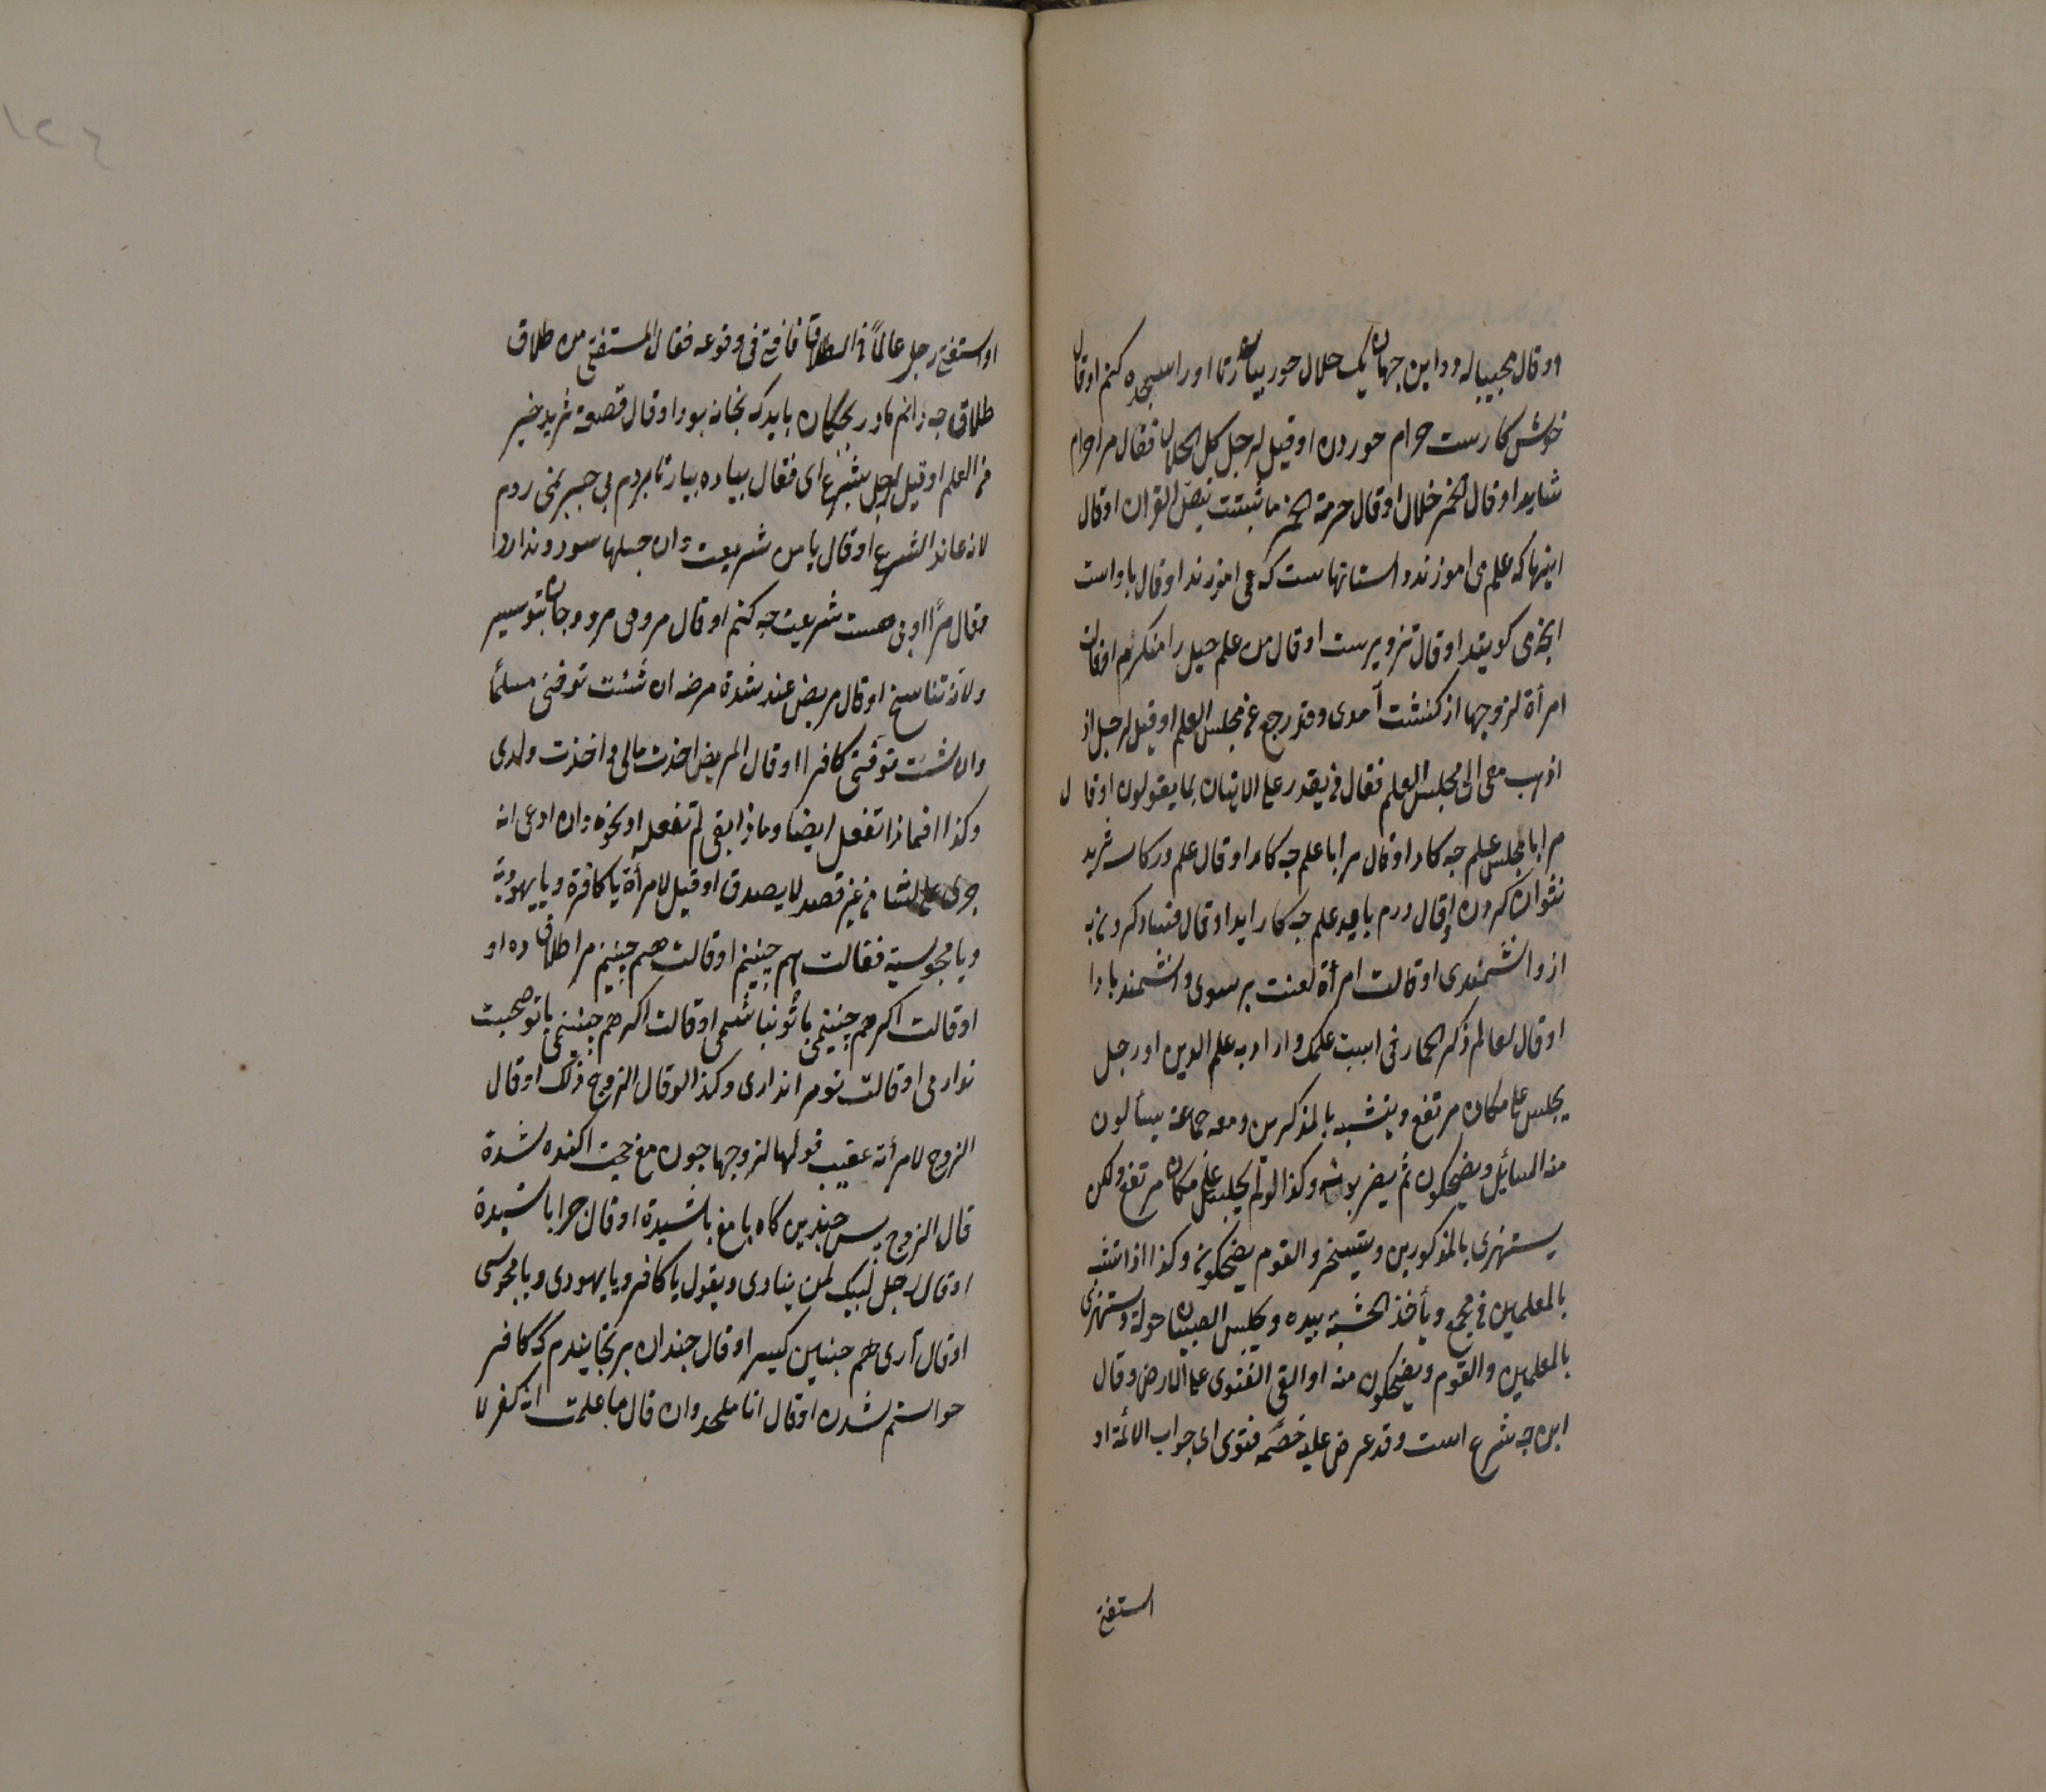 ووقال مجیبا له ودراین جهان یک حلال خور بیار تا اورا سجده کنم اوقال
خوش کارست حرام خوردن اوقیل لرجل کل الحلال فقال مرا حرام
شاید اوقال الخمر حلال اوقال حرمة الخمر ما ثبتت بنص القران اوقال
اینها که علم می اموزند داستانهاست که می اموزند اوقال باد است
انچه می کویند اوقال تزویرست اوقال من علم حیل را منکرم اوقالت
امرأة لزوجها از کنشت آمدی وقد رجع عن مجلس العلم اوقیل لرجل
اذهب معی الی مجلس العلم فقال من یقدر علی الاتیان بما یقولون اوقال
مرا با مجلس علم چه کار اوقال مرا با علم چه کار اوقال علم در کاسه ثرید
نتوان کردن اوقال درم باید علم چه کار اید اوقال فساد کردن به
از دانشمندی اوقالت امرأة لعنت بر شوی دانشمند باد
اوقال لعالم ذکر الحمار فی است علمک واراد به علم الدین او رجل
یجلس علی مکان مرتفع ویتشبه بالمذکرین ومعه جماعة یسألون
منه المسایل ویضحکون ثم یضربونه وکذا لو لم یجلس علی مکان مرتفع ولکن
یستهزی بالمذکورین ویتسخر والقوم یضحکون وکذا اذا تشبه
بالمعلمین فی مجمع ویأخذ الخشبة بیده ویجلس الصبیان حوله ویستهزی
بالمعلمین والقوم ویضحکون منه او القی الفتوی علی الارض وقال
این چه شرع است وقد عرض علیه خصمه فتوی ای جواب الائمة او
استفتی
او استفتی رجل عالما فی الطلاق فافتی فی وقوعه فقال المستفتی من طلاق
طلاق چه دانم مادر بچکان باید که بخانه بود اوقال قصعة ثرید خیر
من العلم اوقیل لرجل بشرع ای فقال پیاده بیار تا بروم بی جبر نمی روم
لانه عاند الشرع اوقال با من شریعت وان حیلها سود ندارد
فقال مرا دبوس هست شریعت چه کنم اوقال مردمی مرد وجان بتو سپر
ولانه تناسخ اوقال مریض عند شدة مرضه ان شئت توفنی مسلما
وان شئت توفنی کافرا اوقال المریض اخذت مالی واخذت ولدی
وکذا فماذا تفعل ایضا وماذا بقی لم تفعله او نحوه وان ادعی انه
جری علی لسانه من غیر قصد لا یصدق اوقیل لامرأة یا کافرة ویا یهودیة
ویا مجوسیة فقالت هم چنینم اوقالت هم چنینم مرا طلاق ده او
اوقالت اکر هم چنینمی با تو نباشمی اوقالت اکر هم چنینمی با تو صحبت
ندارمی اوقالت تو مرا نداری وکذا لو قال الزوج ذلک اوقال
الزوج لامرأته عقیب قولها لزوجها چون مغ اکنده شدة
قال الزوج پس چندین کاه با مغ باشیدة اوقال چرا باشیدة
اوقال رجل لبیک لمن ینادی ویقول یا کافر ویا یهودی ویا مجوسی
اوقال آری هم چنین کیر اوقال چندان برنجانیدم که کافر
خواستم شدن اوقال انا ملحد وان قال ما علمت انه کفر لا